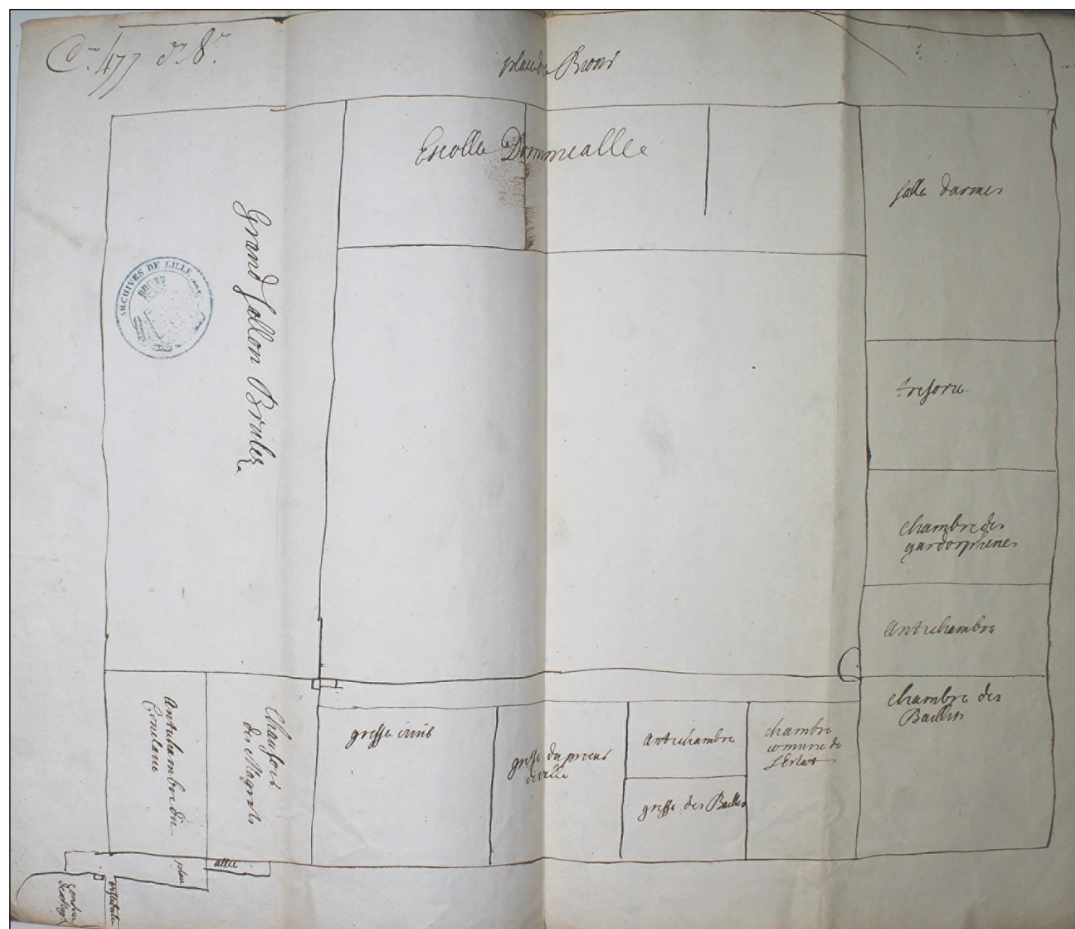 Cn 477 dr 8r
place de
Escolle Dominicalle
salle darmes
Grand sallon Brulez
ARCHIVES DE LILLE
tresorie
chambre des
gardorphenes
Antichambre
chambre des
Baillis
Antichambre du
Conclave
Chaufoir
des Magistrats
greffe civil
greffe du procur
de ville
Antichambre
greffe des Baillis
chambre
comune de
L'Estat
allee
place
vestibule